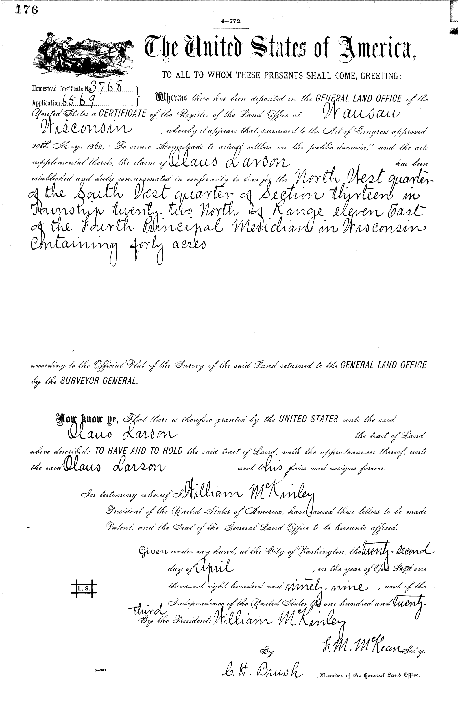 176
4-772.
The United States of America,
TO ALL TO WHOM THESE PRESENTS SHALL COME, GREETING:
Homestead Certificate No. 3768
Application 5569
Whereas there has been deposited in the GENERAL LAND OFFICE of the
United States a CERTIFICATE of the Register of the Land Office at Wausau
Wisconsin, whereby it appears that, pursuant to the Act of Congress approved
20th May, 1862, "To secure Homesteads to actual settlers on the public domain," and the acts
supplemental thereto, the claim of Claus Larson has been
established and duly consummated in conformity to law for the North West quarter
of the South West quarter of Section thirteen in
Township twenty two North of Range eleven East
of the Fourth Principal Meridian in Wisconsin
containing forty acres
according to the Official Plat of the Survey of the said Land returned to the GENERAL LAND OFFICE
by the SURVEYOR GENERAL.
Now know ye, That there is therefore granted by the UNITED STATES unto the said
Claus Larson the tract of Land
above described: TO HAVE AND TO HOLD the said tract of Land, with the appurtenances thereof, unto
the said Claus Larson and to his heirs and assigns forever.
In testimony whereof I William McKinley
President of the United States of America, have caused these letters to be made
Patent, and the Seal of the General Land Office to be hereunto affixed.
Given under my hand, at the City of Washington, the twenty second
day of April, in the year of Our Lord one
thousand eight hundred and ninety nine, and of the
L.S.
Independence of the United States the one hundred and twenty-
third
By the President: William McKinley
By F. M. McKean Sec'y.
C. H. Brush, Recorder of the General Land Office.